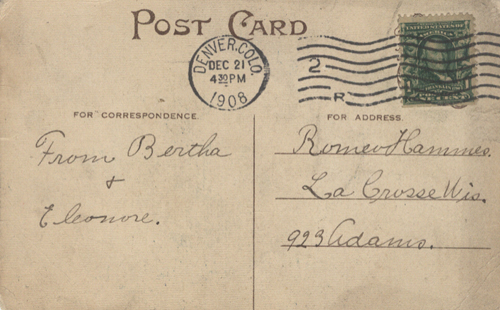 POST CARD
DENVER, COLO.
DEC 21
4 30 PM
1908
2
R
FOR CORRESPONDENCE.
FOR ADDRESS.
From Bertha
&
Eleonore.
Romeo Hammes.
La Crosse Wis.
923 Adams.